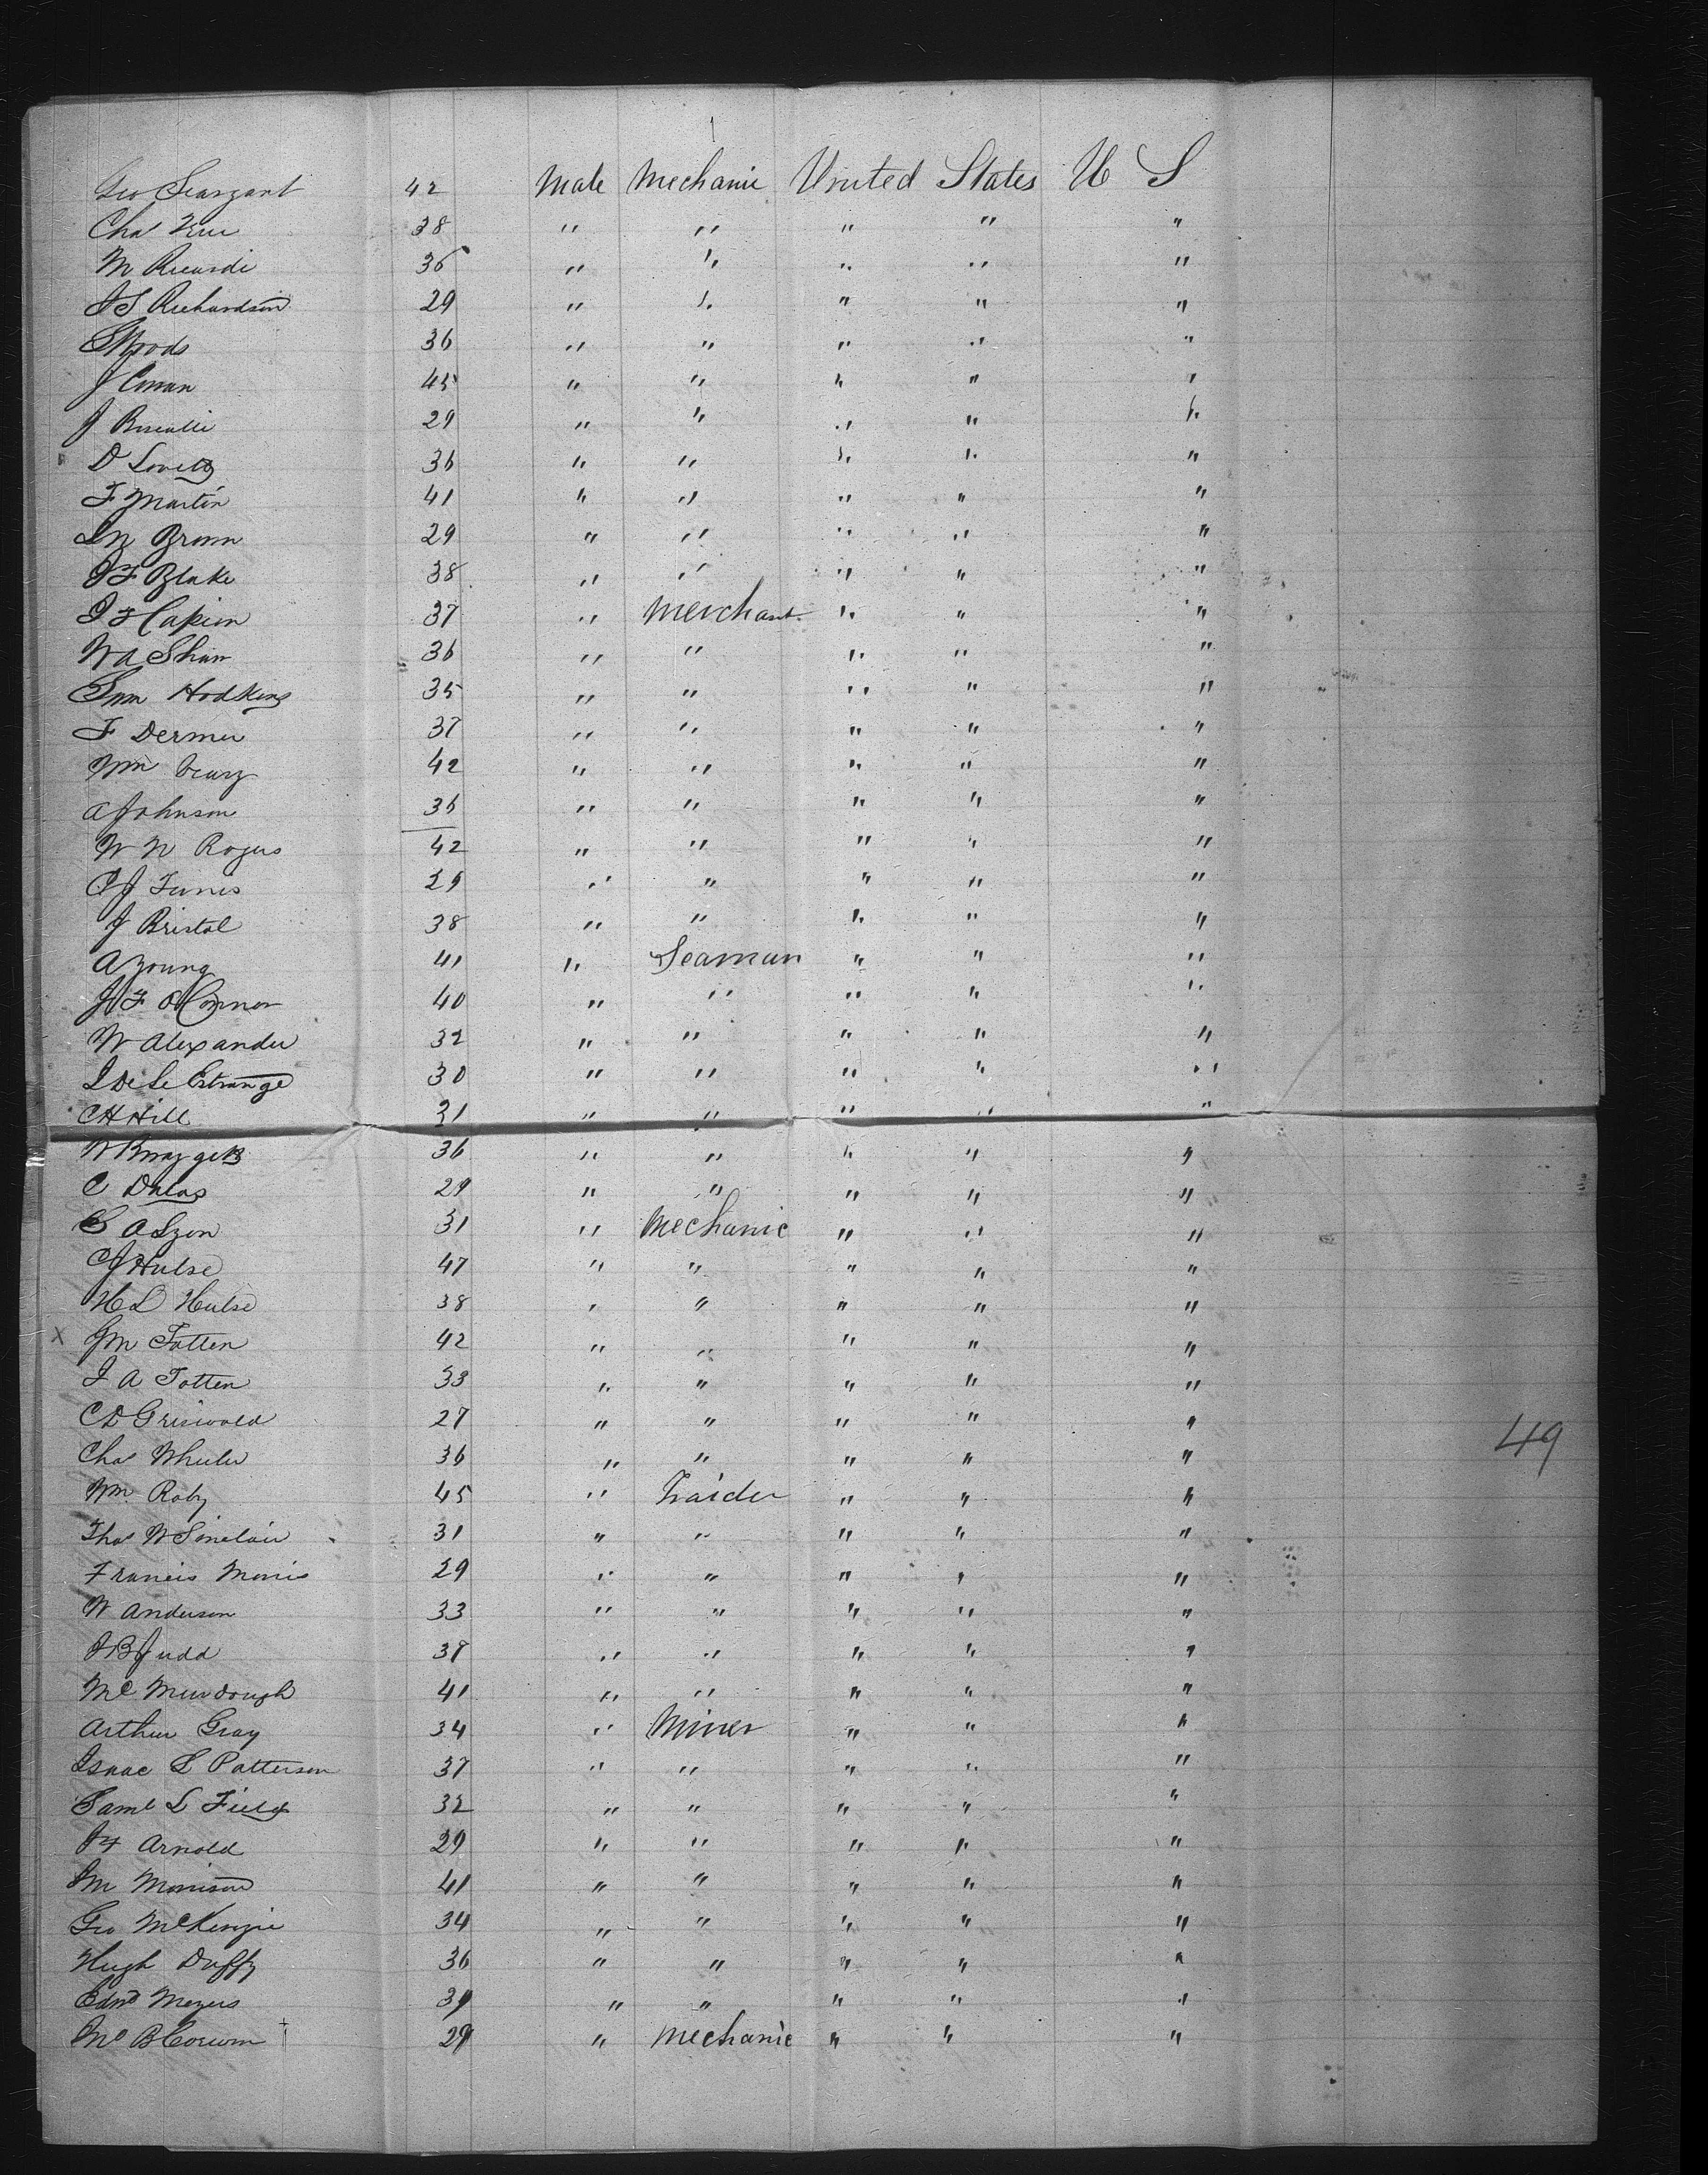 Geo Seargant 42 Male Mechanic United States U S
Chas 38 " " " " "
M Ricardi 36 " " " " "
J S Richardson 29 " " " " "
S Woods 36 " " " " "
J 45 " " " " "
J 29 " " " " "
D 36 " " " " "
F Martin 41 " " " " "
Brown 29 " " " " "
J F Blake 38 " " " " "
J F 37 " Merchant " " "
W A Shaw 36 " " " " "
Sam Hodkins 35 " " " " "
F Dermer 37 " " " " "
Wm Geary 42 " " " " "
A Johnson 36 " " " " "
W W Rogers 42 " " " " "
C J 29 " " " " "
J Bristol 38 " " " " "
A Young 41 " Seaman " " "
J F O Connor 40 " " " " "
W Alexander 32 " " " " "
De Le Estrange 30 " " " " "
C H Hill 31 " " " " "
W 36 " " " " "
C Dulas 29 " " " " "
S A Lyon 31 " Mechanic " " "
C J Hulse 47 " " " " "
H L Hulse 38 " " " " "
G M Totten 42 " " " " "
J A Totten 33 " " " " "
C D Griswold 27 " " " " "
Chas Wheeler 36 " " " " "
49
Wm Roby 45 " Traider " " "
Thos W Sinclair 31 " " " " "
Francis Morris 29 " " " " "
W Anderson 33 " " " " "
J B Judd 37 " " " " "
Mc Murdough 41 " " " " "
Arthur Gray 34 " Miner " " "
Isaac L Patterson 37 " " " " "
Saml L Field 32 " " " " "
Arnold 29 " " " " "
Morrison 41 " " " " "
Geo McKenzie 34 " " " " "
Hugh Duffy 36 " " " " "
Edwd Meyers 39 " " " " "
B Corwin 29 " Mechanic " " "